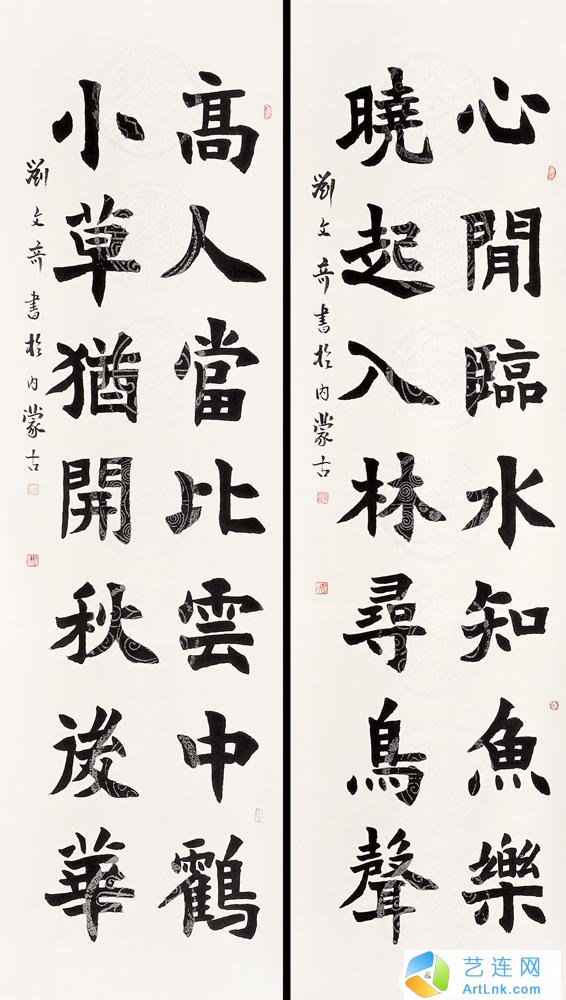 心閒臨水知魚樂
曉起入林尋鳥聲
劉文奇書於内蒙古
高人當比雲中鶴
小草猶開秋後華
劉文奇書於内蒙古
艺连网
ArtLnk.com